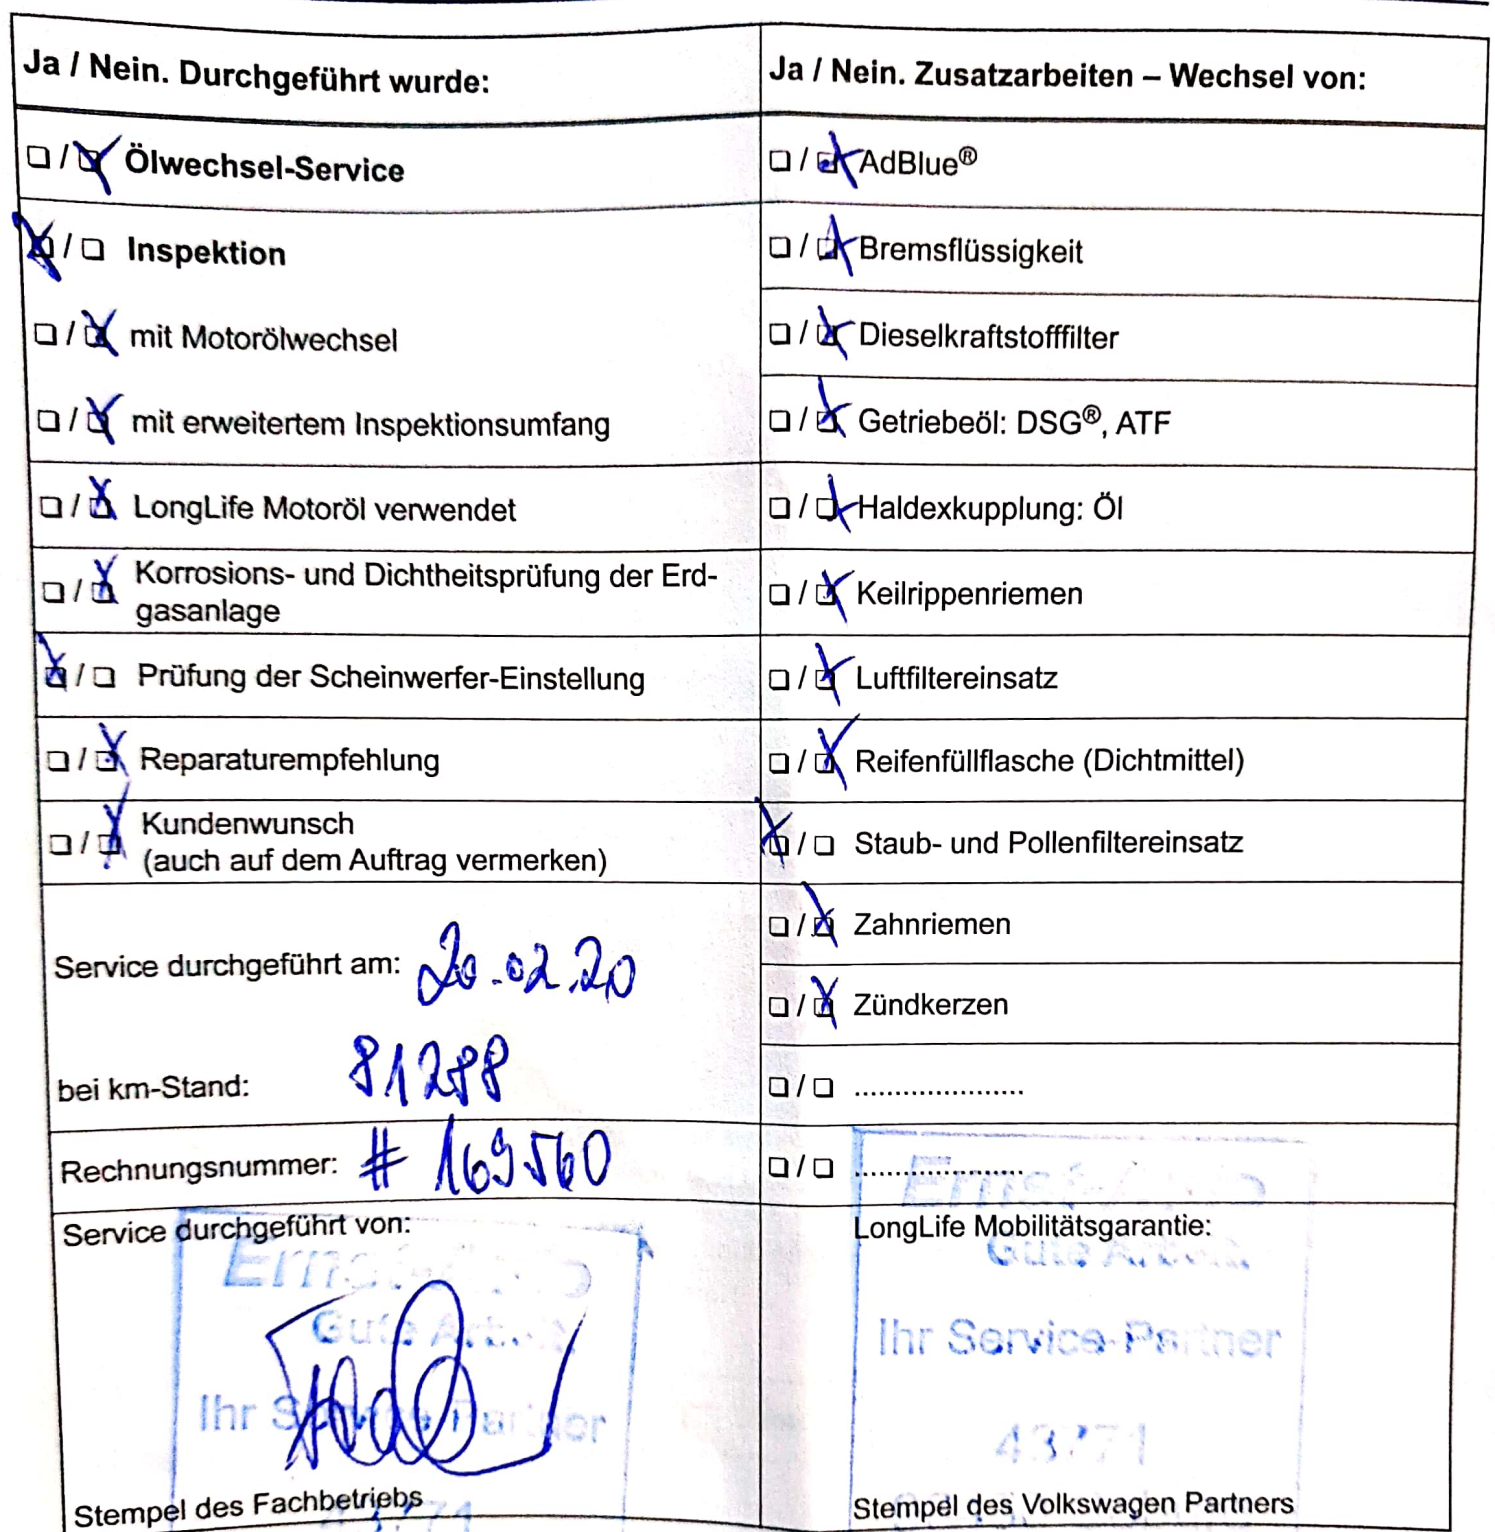 Ja / Nein. Durchgeführt wurde:
❏ / ❏ Ölwechsel-Service
❏ / ❏ Inspektion
❏ / ❏ mit Motorölwechsel
❏ / ❏ mit erweitertem Inspektionsumfang
❏ / ❏ LongLife Motoröl verwendet
❏ / ❏ Korrosions- und Dichtheitsprüfung der Erd-
gasanlage
❏ / ❏ Prüfung der Scheinwerfer-Einstellung
❏ / ❏ Reparaturempfehlung
❏ / ❏ Kundenwunsch
(auch auf dem Auftrag vermerken)
Service durchgeführt am: 20.02.20
bei km-Stand: 81288
Rechnungsnummer: # 169560
Service durchgeführt von:
Gute
Ihr Service-Partner
Stempel des Fachbetriebs
Ja / Nein. Zusatzarbeiten – Wechsel von:
❏ / ❏ AdBlue®
❏ / ❏ Bremsflüssigkeit
❏ / ❏ Dieselkraftstofffilter
❏ / ❏ Getriebeöl: DSG®, ATF
❏ / ❏ Haldexkupplung: Öl
❏ / ❏ Keilrippenriemen
❏ / ❏ Luftfiltereinsatz
❏ / ❏ Reifenfüllflasche (Dichtmittel)
❏ / ❏ Staub- und Pollenfiltereinsatz
❏ / ❏ Zahnriemen
❏ / ❏ Zündkerzen
❏ / ❏ .....................
❏ / ❏ .....................
LongLife Mobilitätsgarantie:
Gute
Ihr Service-Partner
43771
Stempel des Volkswagen Partners